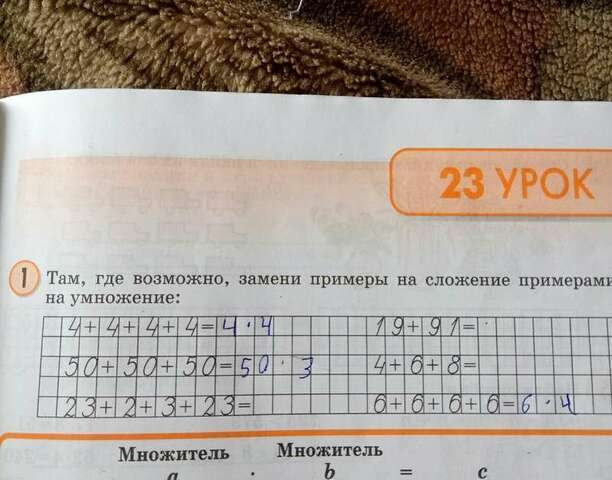 23 УРОК
1 Там, где возможно, замени примеры на сложение примерами
на умножение:
4+4+4+4=4·4 19+91=
50+50+50=50·3 4+6+8=
23+2+3+23= 6+6+6+6=6·4
Множитель Множитель
a · b = c